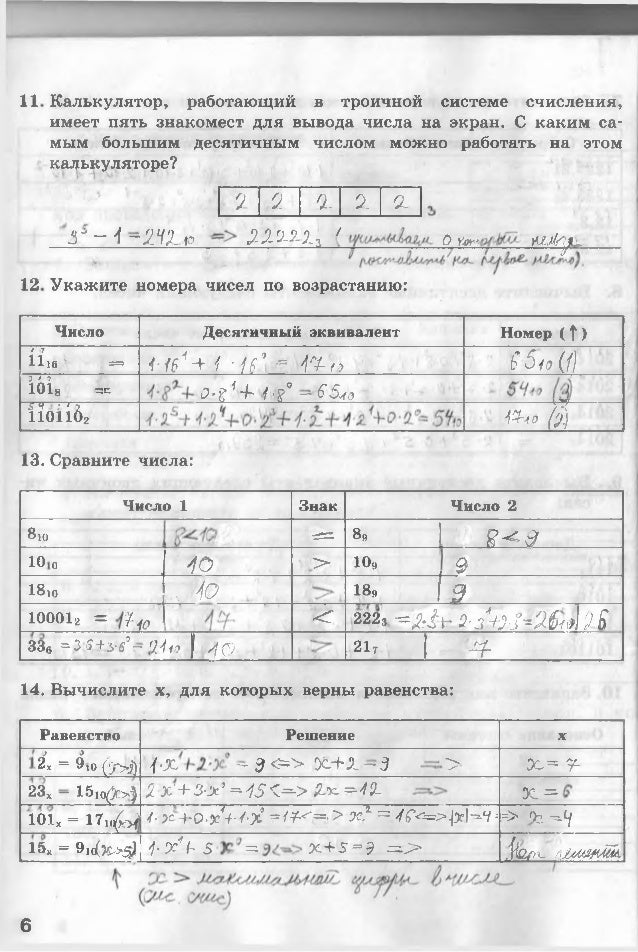 11. Калькулятор, работающий в троичной системе счисления,
имеет пять знакомест для вывода числа на экран. С каким са-
мым большим десятичным числом можно работать на этом
калькуляторе?
2 2 2 2 2 3
3⁵ − 1 = 242₁₀ => 22222₃ (учитываем, о который нельзя
поставить на первое место).
12. Укажите номера чисел по возрастанию:
Число Десятичный эквивалент Номер (↑)
11₁₆ = 1·16¹ + 1·16⁰ = 17₁₀ 65₁₀ (1)
101₈ = 1·8² + 0·8¹ + 1·8⁰ = 65₁₀ 54₁₀ (3)
110110₂ 1·2⁵ + 1·2⁴ + 0·2³ + 1·2² + 1·2¹ + 0·2⁰ = 54₁₀ 17₁₀ (2)
13. Сравните числа:
Число 1 Знак Число 2
8₁₀ 8<10 = 8₉ 8<9
10₁₀ 10 > 10₉ 9
18₁₀ 10 > 18₉ 9
10001₂ = 17₁₀ 17 < 222₃ = 2·3² + 2·3¹ + 2·3⁰ = 26₁₀ 26
33₆ = 3·6 + 3·6⁰ = 21₁₀ 10 > 21₇ 7
14. Вычислите x, для которых верны равенства:
Равенство Решение x
12ₓ = 9₁₀ 1·x¹ + 2·x⁰ = 9 <=> x + 2 = 9 => x = 7
23ₓ = 15₁₀ 2·x¹ + 3·x⁰ = 15 <=> 2x = 12 => x = 6
101ₓ = 17₁₀ 1·x² + 0·x¹ + 1·x⁰ = 17 <=> x² = 16 <=> |x| = 4 => x = 4
15ₓ = 9₁₀ (x>5) 1·x¹ + 5·x⁰ = 9 <=> x + 5 = 9 => Нет решений
↑ x > максимальной цифры в числе
(ис. счис)
6